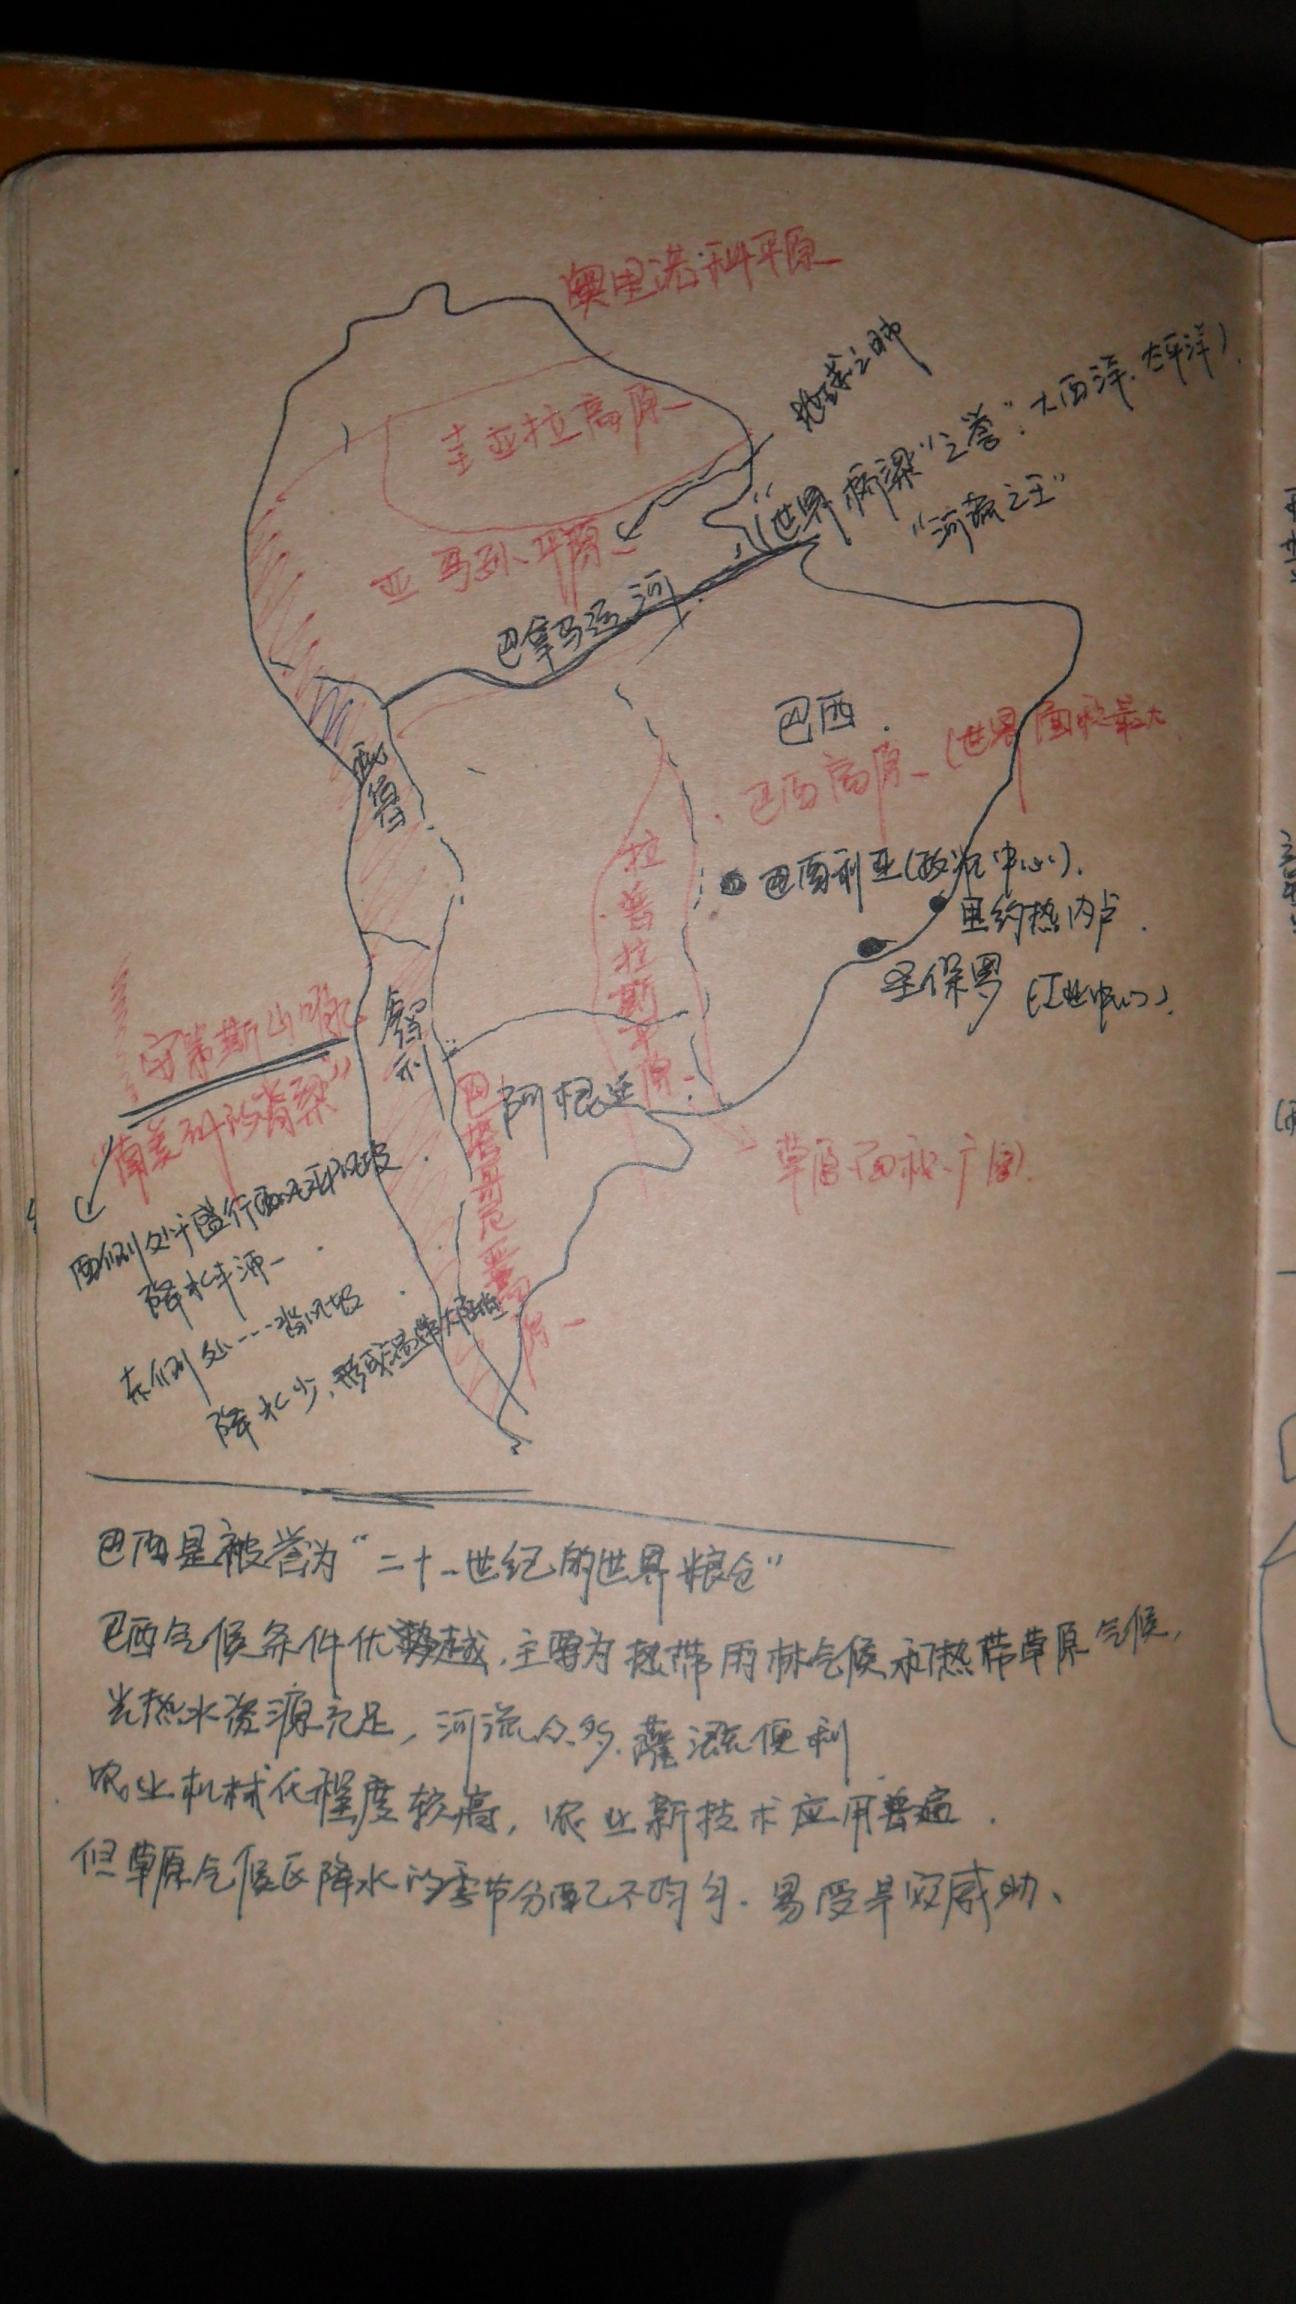 澳里诺科平原
地球之肺
圭亚拉高原
"世界桥梁"之誉：大西洋、太平洋）.
"河流之王"
亚马孙平原
巴拿马运河
巴西
巴西高原（世界面积最大
秘鲁
拉普拉斯平原
巴西利亚(政治中心).
里约热内卢.
圣保罗（工业中心）
安第斯山脉
智利
"南美洲的脊梁"
阿根廷
巴塔哥尼亚高原
草原面积广阔).
西侧处于盛行西风迎风坡.
降水丰沛
东侧处…背风坡.
降水少,形成温带大陆性
巴西是被誉为"二十一世纪的世界粮仓"
巴西气候条件优越,主要为热带雨林气候和热带草原气候,
光热水资源充足,河流众多.灌溉便利
农业机械化程度较高,农业新技术应用普遍.
但草原气候区降水的季节分配不均匀.易受旱灾威胁、